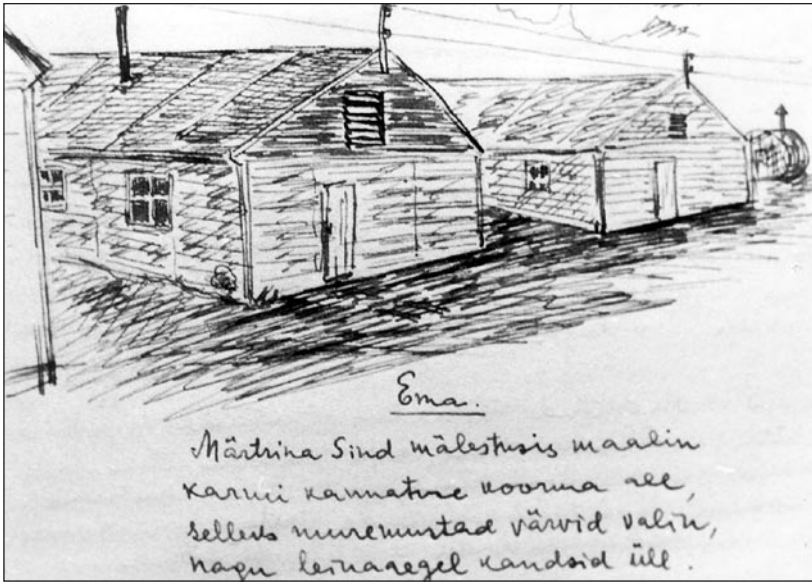 Ema.
Märtrina Sind mälestusis maalin
karmi kannatuse koorma all,
selleks muremustad värvid valin,
nagu leinaaegel kandsid üll.